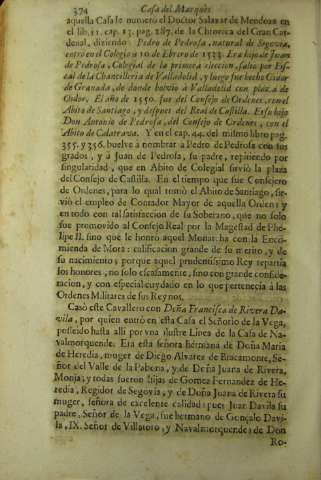 374 Casa del Marquès
aquella Casa le numerò el Doctor Salazar de Mendoza en
el lib. 1. cap. 13. pag. 287. de la Chronica del Gran Car-
denal, diziendo Pedro de Pedrosa, natural de Segovia,
entrò en el Colegio à 10. de Febrero de 1533. Era hijo de Juan
de Pedrosa, Colegial de la primera eleccion, saliò por Fis-
cal de la Chancilleria de Valladolid, y luego fue hecho Oidor
de Granada, de donde bolviò à Valladolid con plaza de
Oidor. El año de 1550. fue del Consejo de Ordenes, con el
Abito de Santiago, y despues del Real de Castilla. Es su hijo
Don Antonio de Pedrosa, del Consejo de Ordenes, con el
Abito de Calatrava. Y en el cap. 44. del mismo libro pag.
355. y 356. buelve à nombrar a Pedro de Pedrosa con sus
grados, y à Juan de Pedrosa, su padre, repitiendo por
singularidad, que en Abito de Colegial sirviò la plaza
del Consejo de Castilla. En el tiempo que fue Consejero
de Ordenes, para lo qual tomò el Abito de Santiago, sir-
viò el empleo de Contador Mayor de aquella Orden; y
en todo con tal satisfaccion de su Soberano, que no solo
fue promovido al Consejo Real por la Magestad de Phe-
lipe II. sino que le honrò aquel Monarca con la Enco-
mienda de Mora: calificacion grande de su merito, y de
su nacimiento; porque aquel prudentissimo Rey repartia
los honores, no solo escasamente, sino con grande conside-
racion, y con especial cuydado en lo que pertenecia à las
Ordenes Militares de sus Reynos.
Casò este Cavallero con Doña Francisca de Rivera Da-
vila, por quien entrò en esta Casa el Señorio de la Vega,
posseido hasta alli por vna ilustre Linea de la Casa de Na-
valmorquende. Era esta señora hermana de Doña Maria
de Heredia, muger de Diego Alvarez de Bracamonte, Se-
ñor del Valle de la Pabona, y de Doña Juana de Rivera,
Monja; y todas fueron hijas de Gomez Fernandez de He-
redia, Regidor de Segovia, y de Doña Juana de Rivera su
muger, señora de excelente calidad: pues Juan Davila su
padre, Señor de la Vega, fue hermano de Gonçalo Davi-
la, IX. Señor de Villatoro, y Navalmorquende: de Don
Ro-